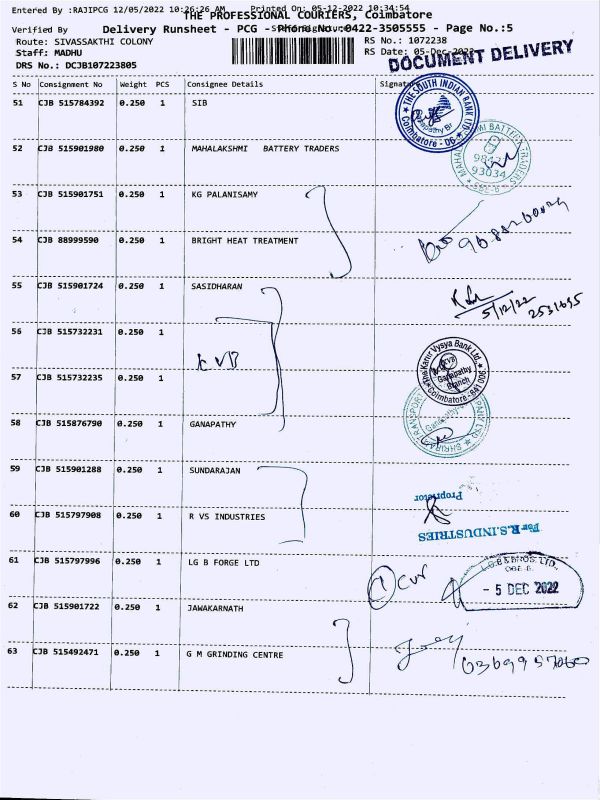 Entered By :RAJIPCG 12/05/2022 10:26:26 AM Printed On: 05-12-2022 10:34:54
THE PROFESSIONAL COURIERS, Coimbatore
Verified By Staff Signature
Delivery Runsheet - PCG - Phone No.:0422-3505555 - Page No.:5
Route: SIVASSAKTHI COLONY RS No.: 1072238
Staff: MADHU RS Date: 05-Dec-2022
DRS No.: DCJB107223805
DOCUMENT DELIVERY
S No Consignment No Weight PCS Consignee Details Signature
51 CJB 515784392 0.250 1 SIB
THE SOUTH INDIAN BANK LTD.
Coimbatore
52 CJB 515901980 0.250 1 MAHALAKSHMI BATTERY TRADERS
93034
53 CJB 515901751 0.250 1 KG PALANISAMY
54 CJB 88999590 0.250 1 BRIGHT HEAT TREATMENT
55 CJB 515901724 0.250 1 SASIDHARAN
5/12/22
56 CJB 515732231 0.250 1
KVB
57 CJB 515732235 0.250 1
The Karur Vysya Bank Ltd.
KVB
Ganapathy
Branch
Coimbatore - 641 006
58 CJB 515876790 0.250 1 GANAPATHY
59 CJB 515901288 0.250 1 SUNDARAJAN
Proprietor
60 CJB 515797908 0.250 1 R VS INDUSTRIES
For R.S.INDUSTRIES
61 CJB 515797996 0.250 1 LG B FORGE LTD
L.G.B & BROS. LTD.,
- 5 DEC 2022
62 CJB 515901722 0.250 1 JAWAKARNATH
63 CJB 515492471 0.250 1 G M GRINDING CENTRE